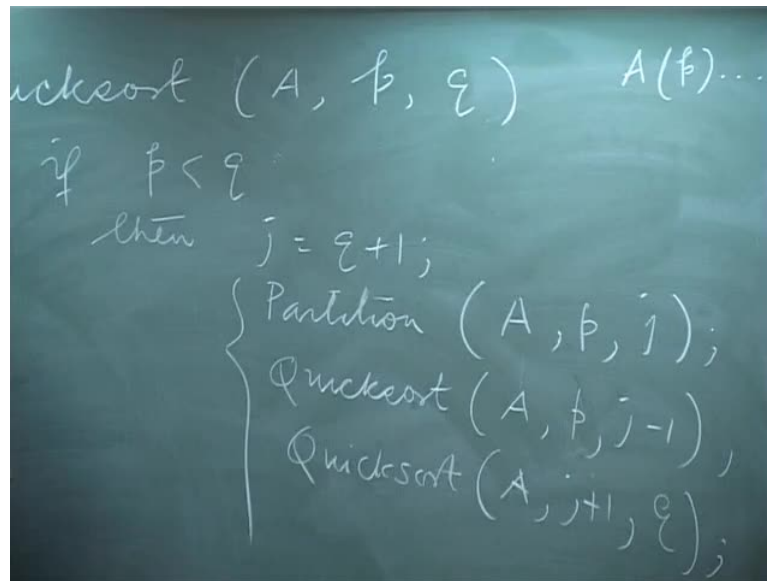 uicksort (A, p, q) A(p)...
if p < q
then j = q+1;
{ Partition (A, p, j);
Quicksort (A, p, j-1),
Quicksort (A, j+1, q);